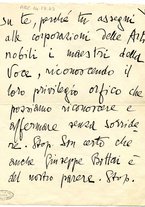 su te, perché tu assegni
alle corporazioni delle Arti
nobili i maestri della
Voce, riconoscendo il
loro privilegio orfico che
possiamo riconoscere e
affermare senza sorride
re. Stop. Son certo che
anche Giuseppe Bottai è
del nostro parere. Stop.